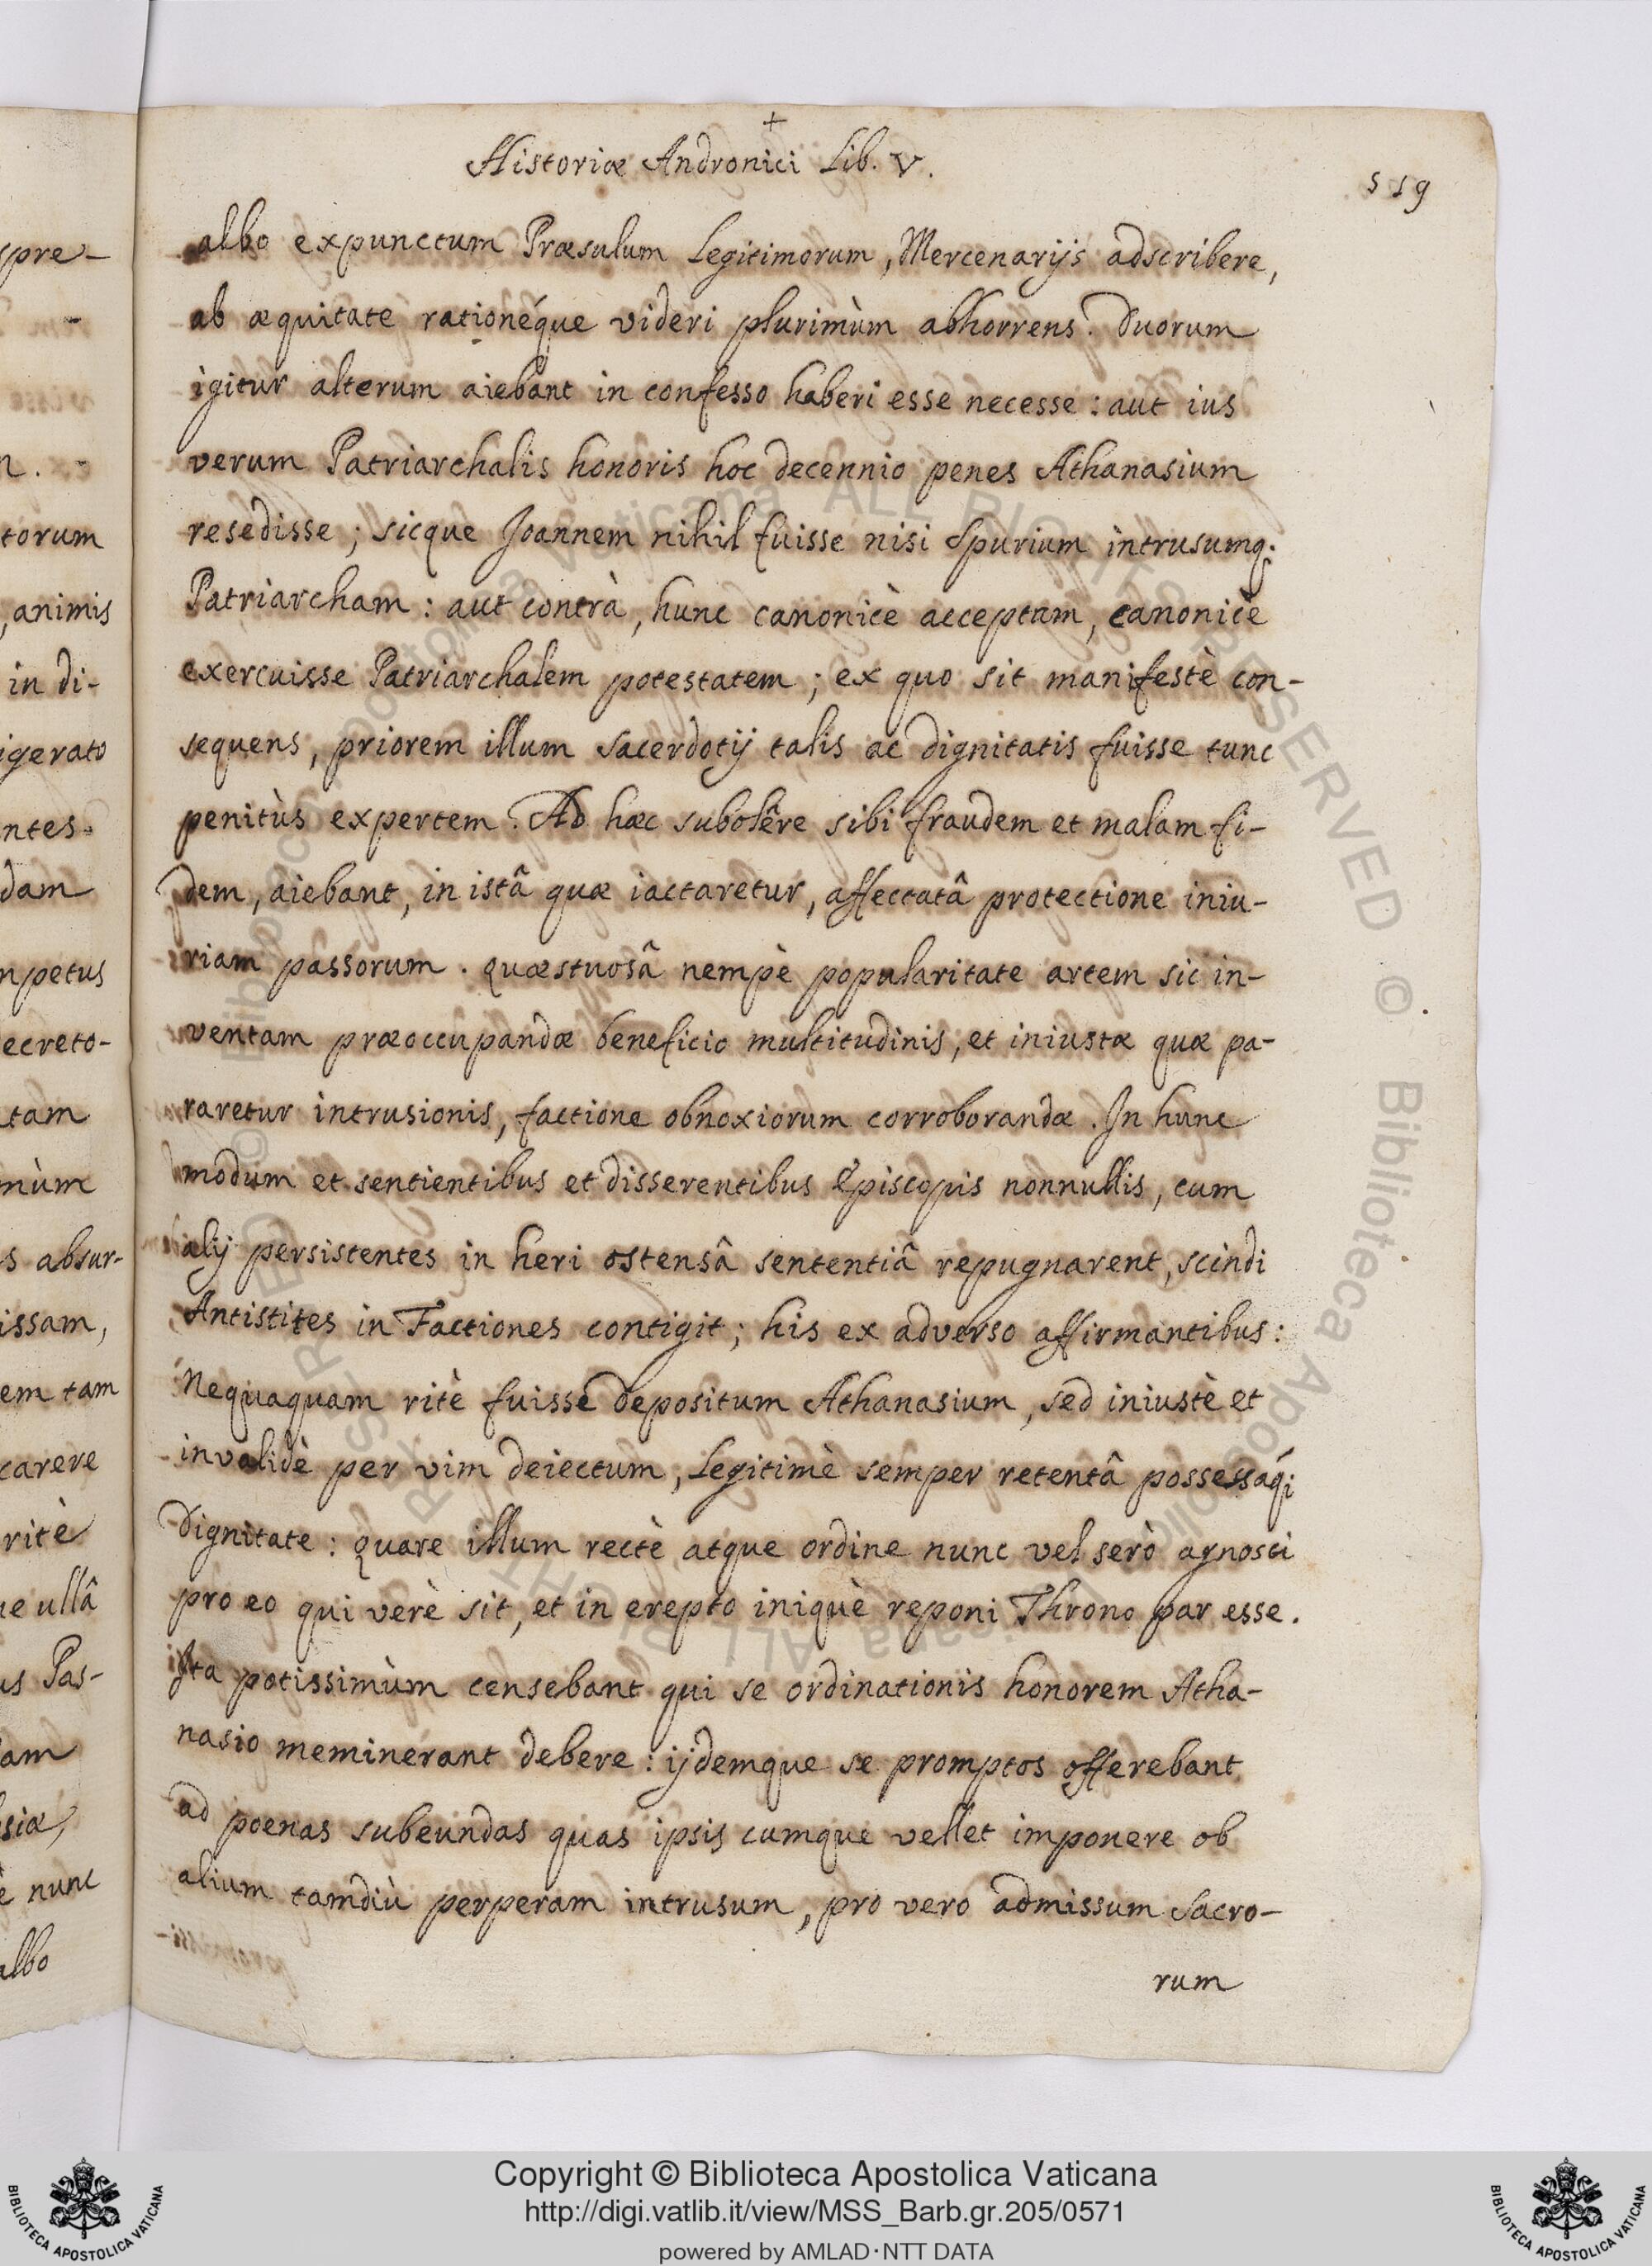 +
Historiæ Andronici Lib. V.
519
albo expunctum Præsulum Legitimorum, Mercenarijs adscribere,
ab æquitate rationéque videri plurimùm abhorrens. Duorum
igitur alterum aiebant in confesso haberi esse necesse: aut ius
verum Patriarchalis honoris hoc decennio penes Athanasium
resedisse; sicque Joannem nihil fuisse nisi Spurium intrusumq;
Patriarcham: aut contrà, hunc canonicè acceptam, canonicè
exercuisse Patriarchalem potestatem; ex quo sit manifestè con-
sequens, priorem illum Sacerdotij talis ac dignitatis fuisse tunc
penitùs expertem. Ad hæc subolêre sibi fraudem et malam fi-
dem, aiebant, in istâ quæ iactaretur, affectatâ protectione iniu-
riam passorum. quæstuosâ nempè popularitate artem sic in-
ventam præoccupandæ beneficio multitudinis, et iniustæ quæ pa-
raretur intrusionis, factione obnoxiorum corroborandæ. In hunc
modum et sentientibus et disserentibus Episcopis nonnullis, cum
alij persistentes in heri ostensâ sententiâ repugnarent, scindi
Antistites in Factiones contigit; his ex adverso affirmantibus:
Nequaquam ritè fuisse depositum Athanasium, sed iniustè et
invalidè per vim deiectum, Legitimè semper retentâ possessáq;
Dignitate: quare illum rectè atque ordine nunc vel serò agnosci
pro eo qui verè sit, et in erepto iniquè reponi Throno par esse.
Ita potissimùm censebant qui se ordinationis honorem Atha-
nasio meminerant debere: ijdemque se promptos offerebant
ad poenas subeundas quas ipsis cumque vellet imponere ob
alium tamdiù perperam intrusum, pro vero admissum Sacro-
rum
spre-
-
n. -
torum
, animis
in di-
igerato
ntes.
dam
mpetus
ecreto-
tam
mùm
s absur-
issam,
em tam
carere
ritè
ue ullâ
us Pas-
am
siæ,
è nunc
albo
Copyright © Biblioteca Apostolica Vaticana
http://digi.vatlib.it/view/MSS_Barb.gr.205/0571
powered by AMLAD·NTT DATA
BIBLIOTECA APOSTOLICA VATICANA
BIBLIOTECA APOSTOLICA VATICANA